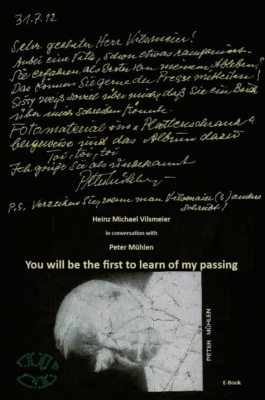 31.7.12
Sehr geehrter Herr Vilsmeier!
Anbei eine Tüte, schon etwas ramponiert.
Sie erfahren als Erster von meinem Ableben.
Das können Sie gerne der Presse mitteilen!
Sissy weiß soviel über mich, daß Sie ein Buch
über mich schreiben könnte.
Fotomaterial im Plattenschrank
bergeweise und das Album dazu
Toi, toi, toi
Ich grüße Sie als unbekannt
P.S. Verzeihen Sie, wenn man Vilsmaier (?) anders
schreibt!
Heinz Michael Vilsmeier
in conversation with
Peter Mühlen
You will be the first to learn of my passing
PETER MÜHLEN
E-Book